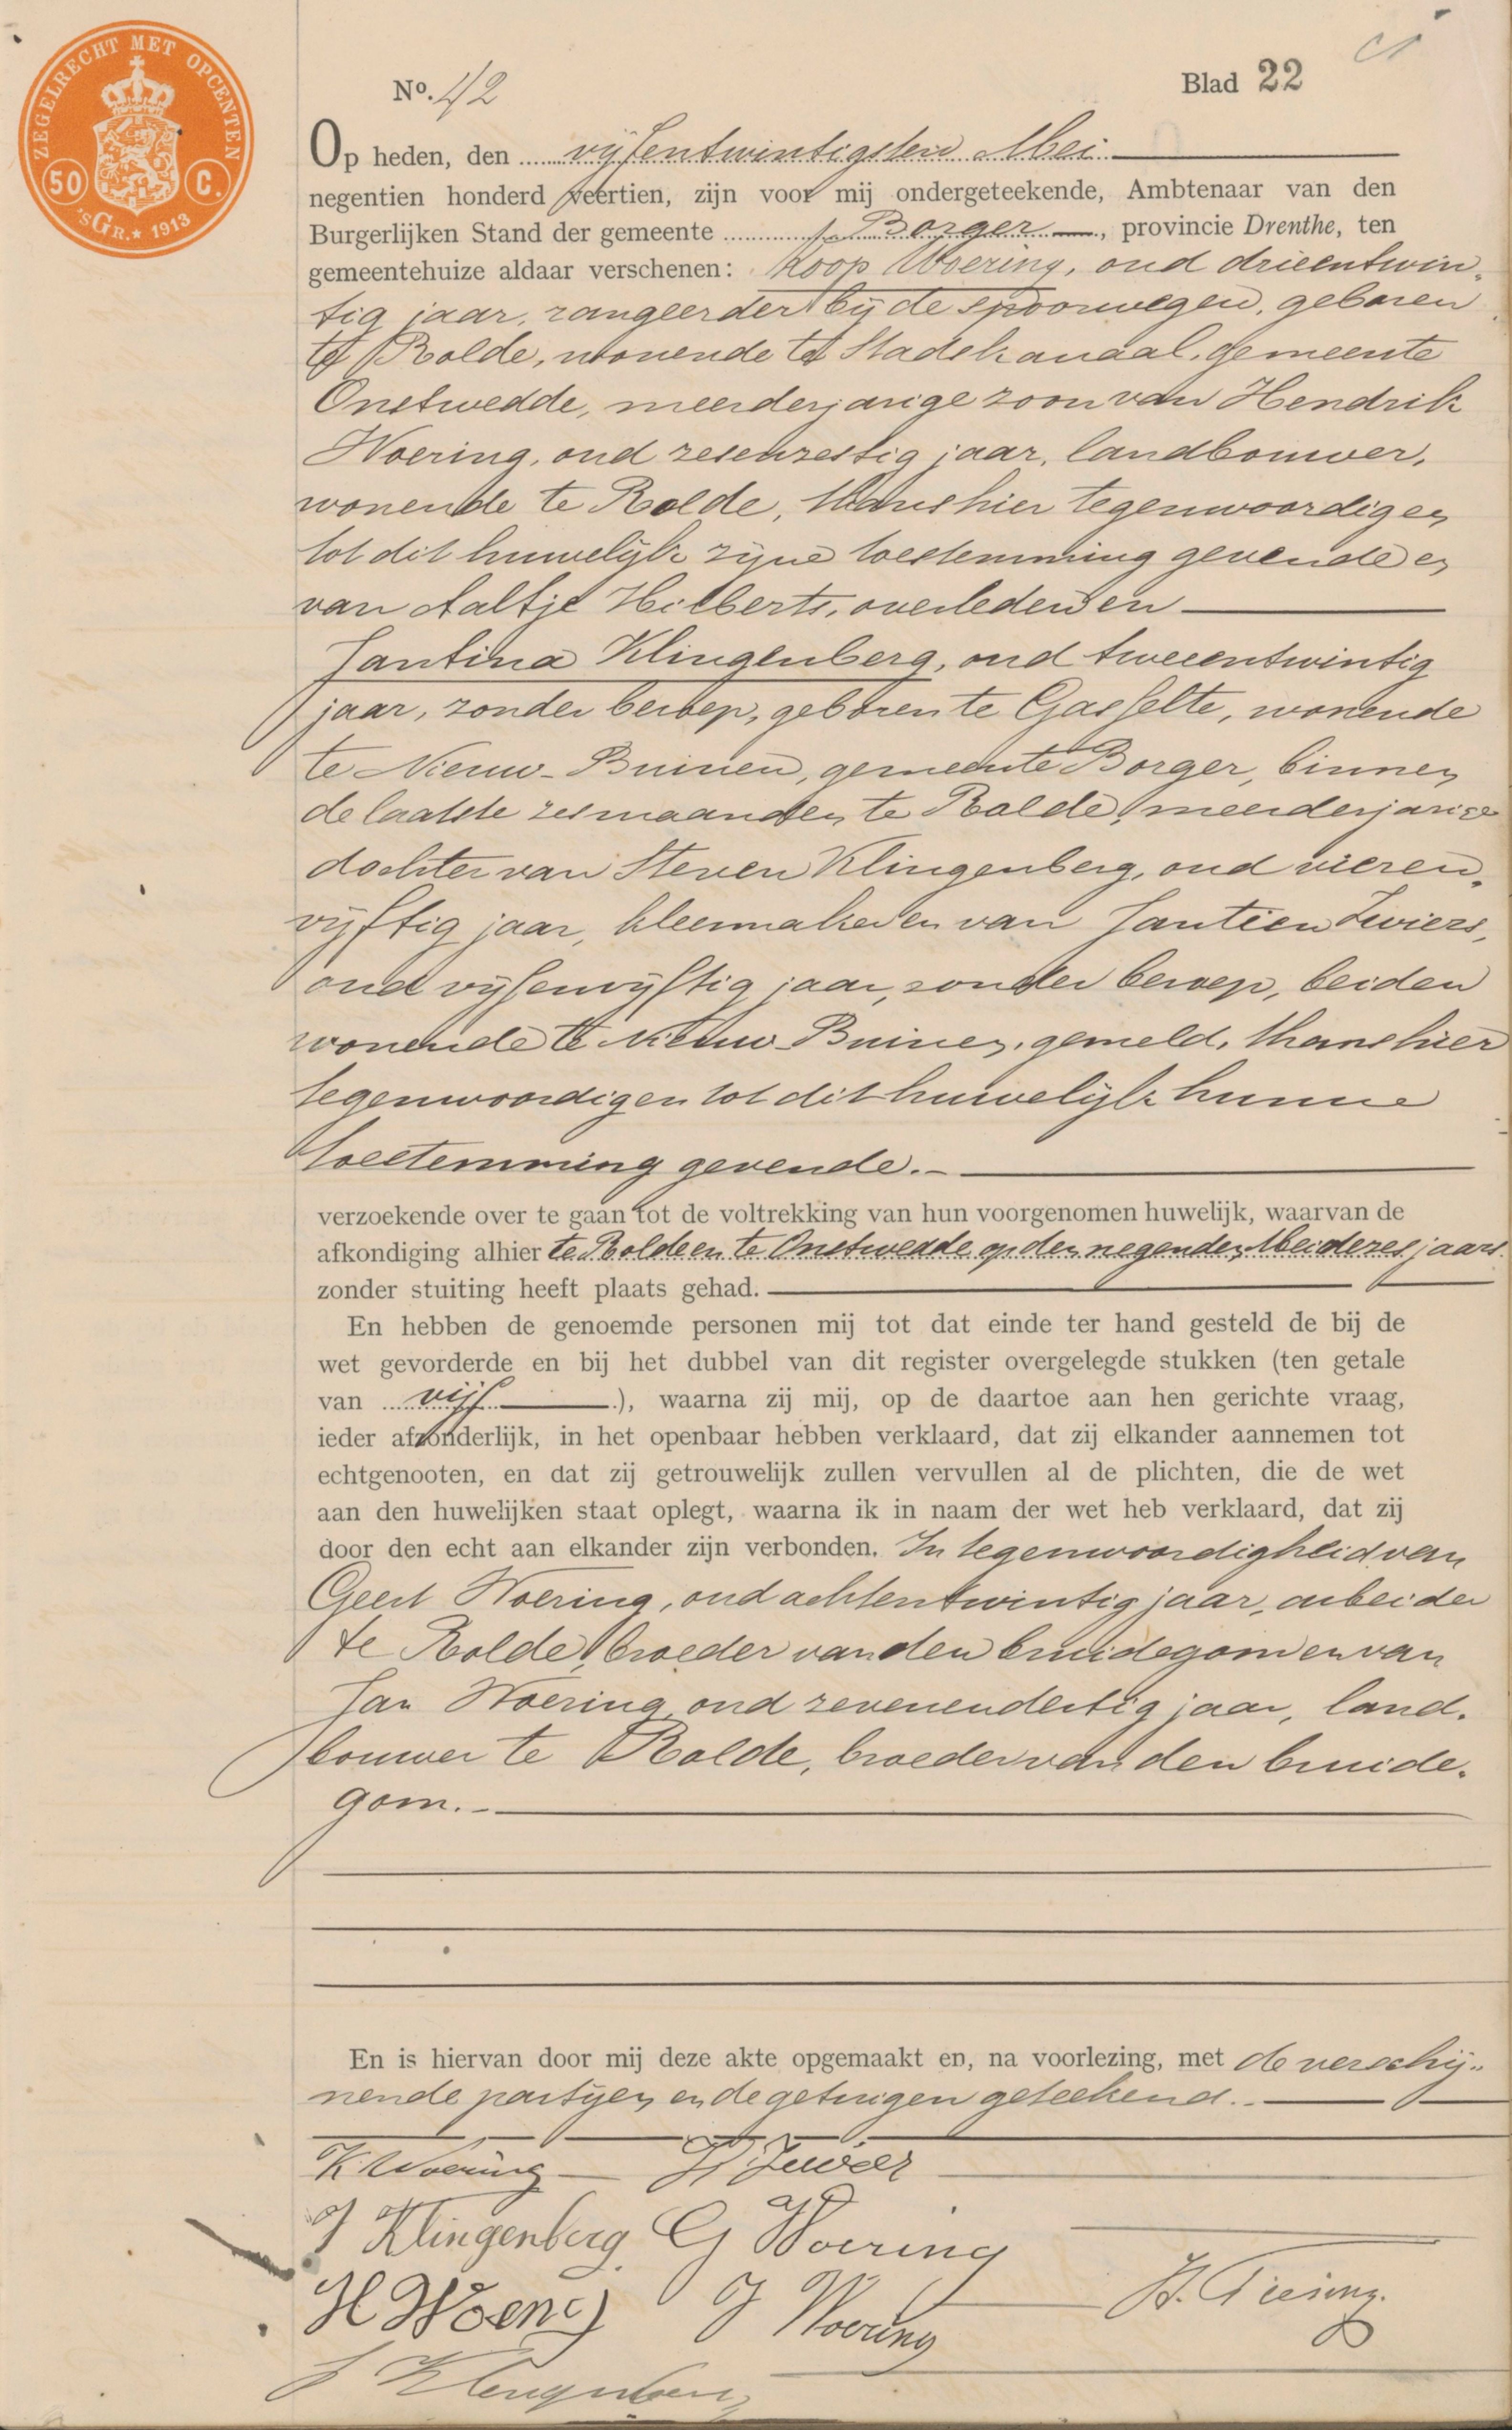 ZEGELRECHT MET OPCENTEN
50 C.
'sGR.★ 1913
No. 42
Blad 22
Op heden, den vijfentwintigsten Mei
negentien honderd veertien, zijn voor mij ondergeteekende, Ambtenaar van den
Burgerlijken Stand der gemeente Borger, provincie Drenthe, ten
gemeentehuize aldaar verschenen: Koop Woering, oud drieentwin-
tig jaar, rangeerder bij de spoorwegen, geboren
te Rolde, wonende te Stadskanaal, gemeente
Onstwedde, meerderjarige zoon van Hendrik
Woering, oud zesenzestig jaar, landbouwer,
wonende te Rolde, thans hier tegenwoordig en
tot dit huwelijk zijne toestemming gevende en
van Aaltje Hilberts, overleden en
Jantina Klingenberg, oud tweeentwintig
jaar, zonder beroep, geboren te Gasselte, wonende
te Nieuw-Buinen, gemeente Borger, binnen
de laatste zes maanden te Rolde, meerderjarige
dochter van Steven Klingenberg, oud vieren-
vijftig jaar, kleermaker en van Jantien Zwiers,
oud vijfenvijftig jaar, zonder beroep, beiden
wonende te Nieuw-Buinen, gemeld, thans hier
tegenwoordig en tot dit huwelijk hunne
toestemming gevende.-
verzoekende over te gaan tot de voltrekking van hun voorgenomen huwelijk, waarvan de
afkondiging alhier te Rolde en te Onstwedde op den negenden Mei dezes jaars
zonder stuiting heeft plaats gehad.
En hebben de genoemde personen mij tot dat einde ter hand gesteld de bij de
wet gevorderde en bij het dubbel van dit register overgelegde stukken (ten getale
van vijf), waarna zij mij, op de daartoe aan hen gerichte vraag,
ieder afzonderlijk, in het openbaar hebben verklaard, dat zij elkander aannemen tot
echtgenooten, en dat zij getrouwelijk zullen vervullen al de plichten, die de wet
aan den huwelijken staat oplegt, waarna ik in naam der wet heb verklaard, dat zij
door den echt aan elkander zijn verbonden. In tegenwoordigheid van
Geert Woering, oud achtentwintig jaar, arbeider
te Rolde, broeder van den bruidegom en van
Jan Woering, oud zevenendertig jaar, land-
bouwer te Rolde, broeder van den bruide-
gom.-
En is hiervan door mij deze akte opgemaakt en, na voorlezing, met de verschij-
nende partijen en de getuigen geteekend.-
K. Woering
J Klingenberg G Woering
H Woering J Woering
S Klingenberg